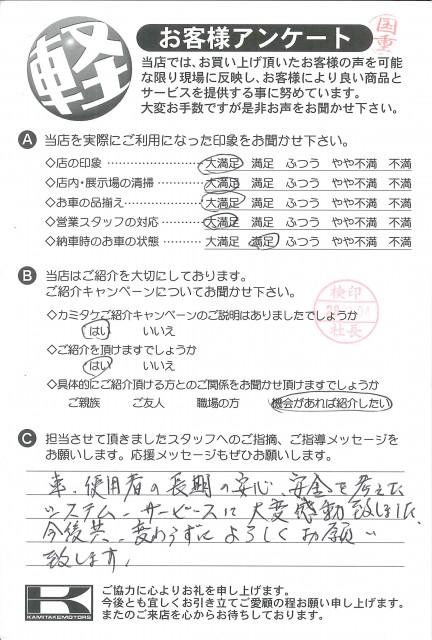 軽
お客様アンケート
国重
当店では、お買い上げ頂いたお客様の声を可能
な限り現場に反映し、お客様により良い商品と
サービスを提供する事に努めています。
大変お手数ですが是非お声をお聞かせ下さい。
A 当店を実際にご利用になった印象をお聞かせ下さい。
◇店の印象 ………………… 大満足 満足 ふつう やや不満 不満
◇店内・展示場の清掃 ……… 大満足 満足 ふつう やや不満 不満
◇お車の品揃え……………… 大満足 満足 ふつう やや不満 不満
◇営業スタッフの対応 ……… 大満足 満足 ふつう やや不満 不満
◇納車時のお車の状態 ……… 大満足 満足 ふつう やや不満 不満
B 当店はご紹介を大切にしております。
ご紹介キャンペーンについてお聞かせ下さい。
◇カミタケご紹介キャンペーンのご説明はありましたでしょうか
はい いいえ
検印
社長
◇ご紹介を頂けますでしょうか
はい いいえ
◇具体的にご紹介頂ける方とのご関係をお聞かせ頂けますでしょうか
ご親族 ご友人 職場の方 機会があれば紹介したい
C 担当させて頂きましたスタッフへのご指摘、ご指導メッセージを
お願いします。応援メッセージもぜひお願いします。
車、使用者の長期の安心、安全を考えた
システム、サービスに大変感動致しました
今後共、変わらずによろしくお願い
致します。
K
KAMITAKEMOTORS
ご協力に心よりお礼を申し上げます。
今後とも宜しくお引き立てご愛顧の程お願い申し上げます。
またのご来店を心からお待ちしております。